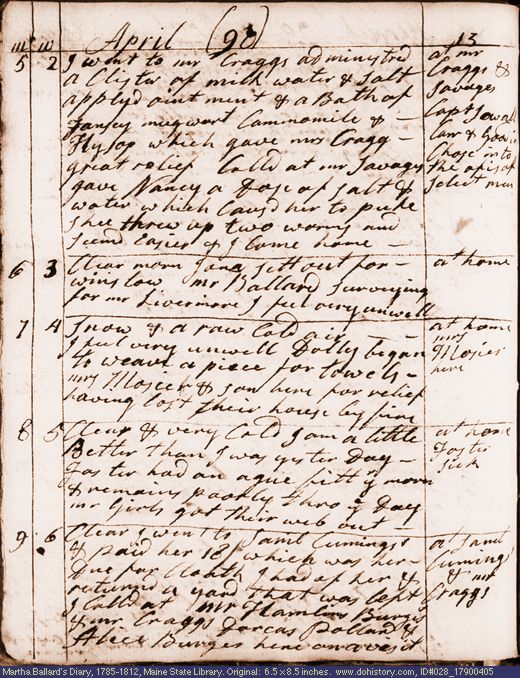 m w April (90) 13
5 2 I went to mr Craggs administred at mr
a Clister of milk water & salt Craggs &
applyd ointment & a Bath of Savages
Tansey mugwort Cammomile & Capt Sewall
Hysop which gave mrs Cragg Carr &
great relief Calld at mr Savages Chose into
gave Nancy a Dose of salt & the ofis of
water which Causd her to puke select men
shee threw up two worms and
seemd Easier I Come home
6 3 Clear morn Jona sett out for at home
winslow mr Ballard surveying
for mr Livermore I feel very unwell
7 4 Snow & a raw Cold air at home
I feel very unwell Dolly began mrs
to weave a piece for towels Mosier
mrs Mosier & son here for relief here
having lost their house by fire
8 5 Clear & very Cold I am a little at home
Better than I was yister Day Foster
Foster had an ague fitt y morn sick
& remains poorly thro y Day
mr Girls got their web out
9 6 Clear I went to Saml Cumings at Saml
& paid her 18/ which was her Cuming
Due for Cloath I had of her & & mr
returned a yard that was left Craggs
I Calld at mr Hamlins Burges
& mr Craggs Dorcas Pollard &
Alice Burges here on a visit
Martha Ballard's Diary, 1785-1812, Maine State Library. Original: 6.5 x 8.5 inches. www.dohistory.com, ID#028_17900405